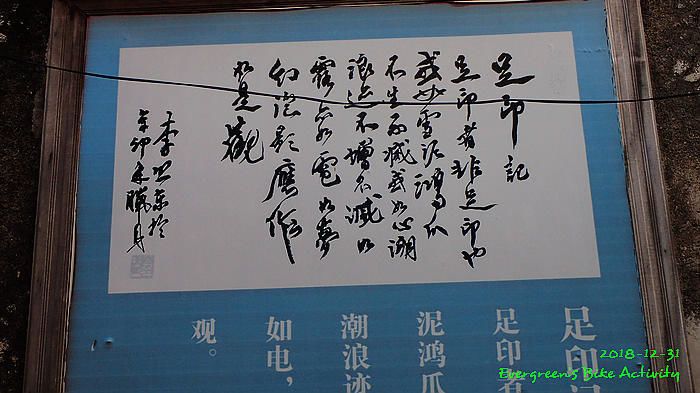 足印記
足印者非足印也
或如雪泥鴻爪
不生不滅或如心潮
浪迹不增不減如
露亦如電如夢
幻泡影應作
如是觀
李 東於
辛卯冬臘月
足印记
足印者
泥鸿爪
潮浪迹
如电，
观。
2018-12-31
Evergreen's Bike Activity